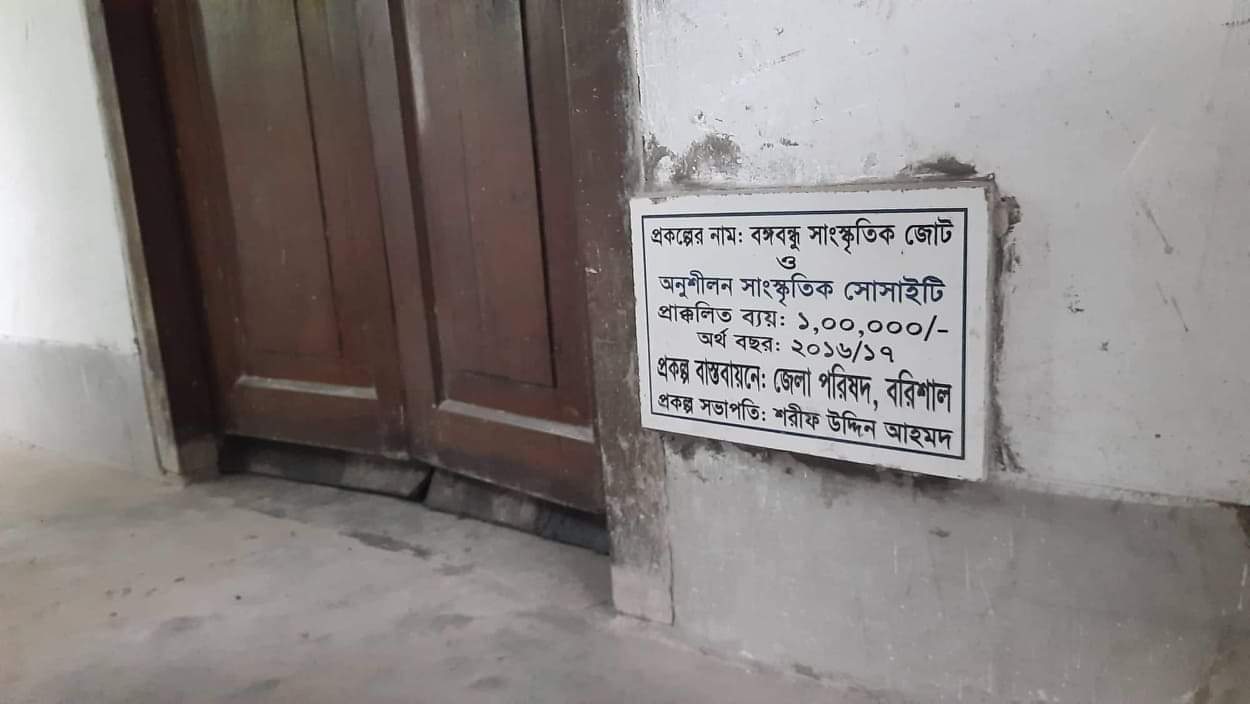 প্রকল্পের নাম: বঙ্গবন্ধু সাংস্কৃতিক জোট
ও
অনুশীলন সাংস্কৃতিক সোসাইটি
প্রাক্কলিত ব্যয়: ১,০০,০০০/-
অর্থ বছর: ২০১৬/১৭
প্রকল্প বাস্তবায়নে: জেলা পরিষদ, বরিশাল
প্রকল্প সভাপতি: শরীফ উদ্দিন আহমদ